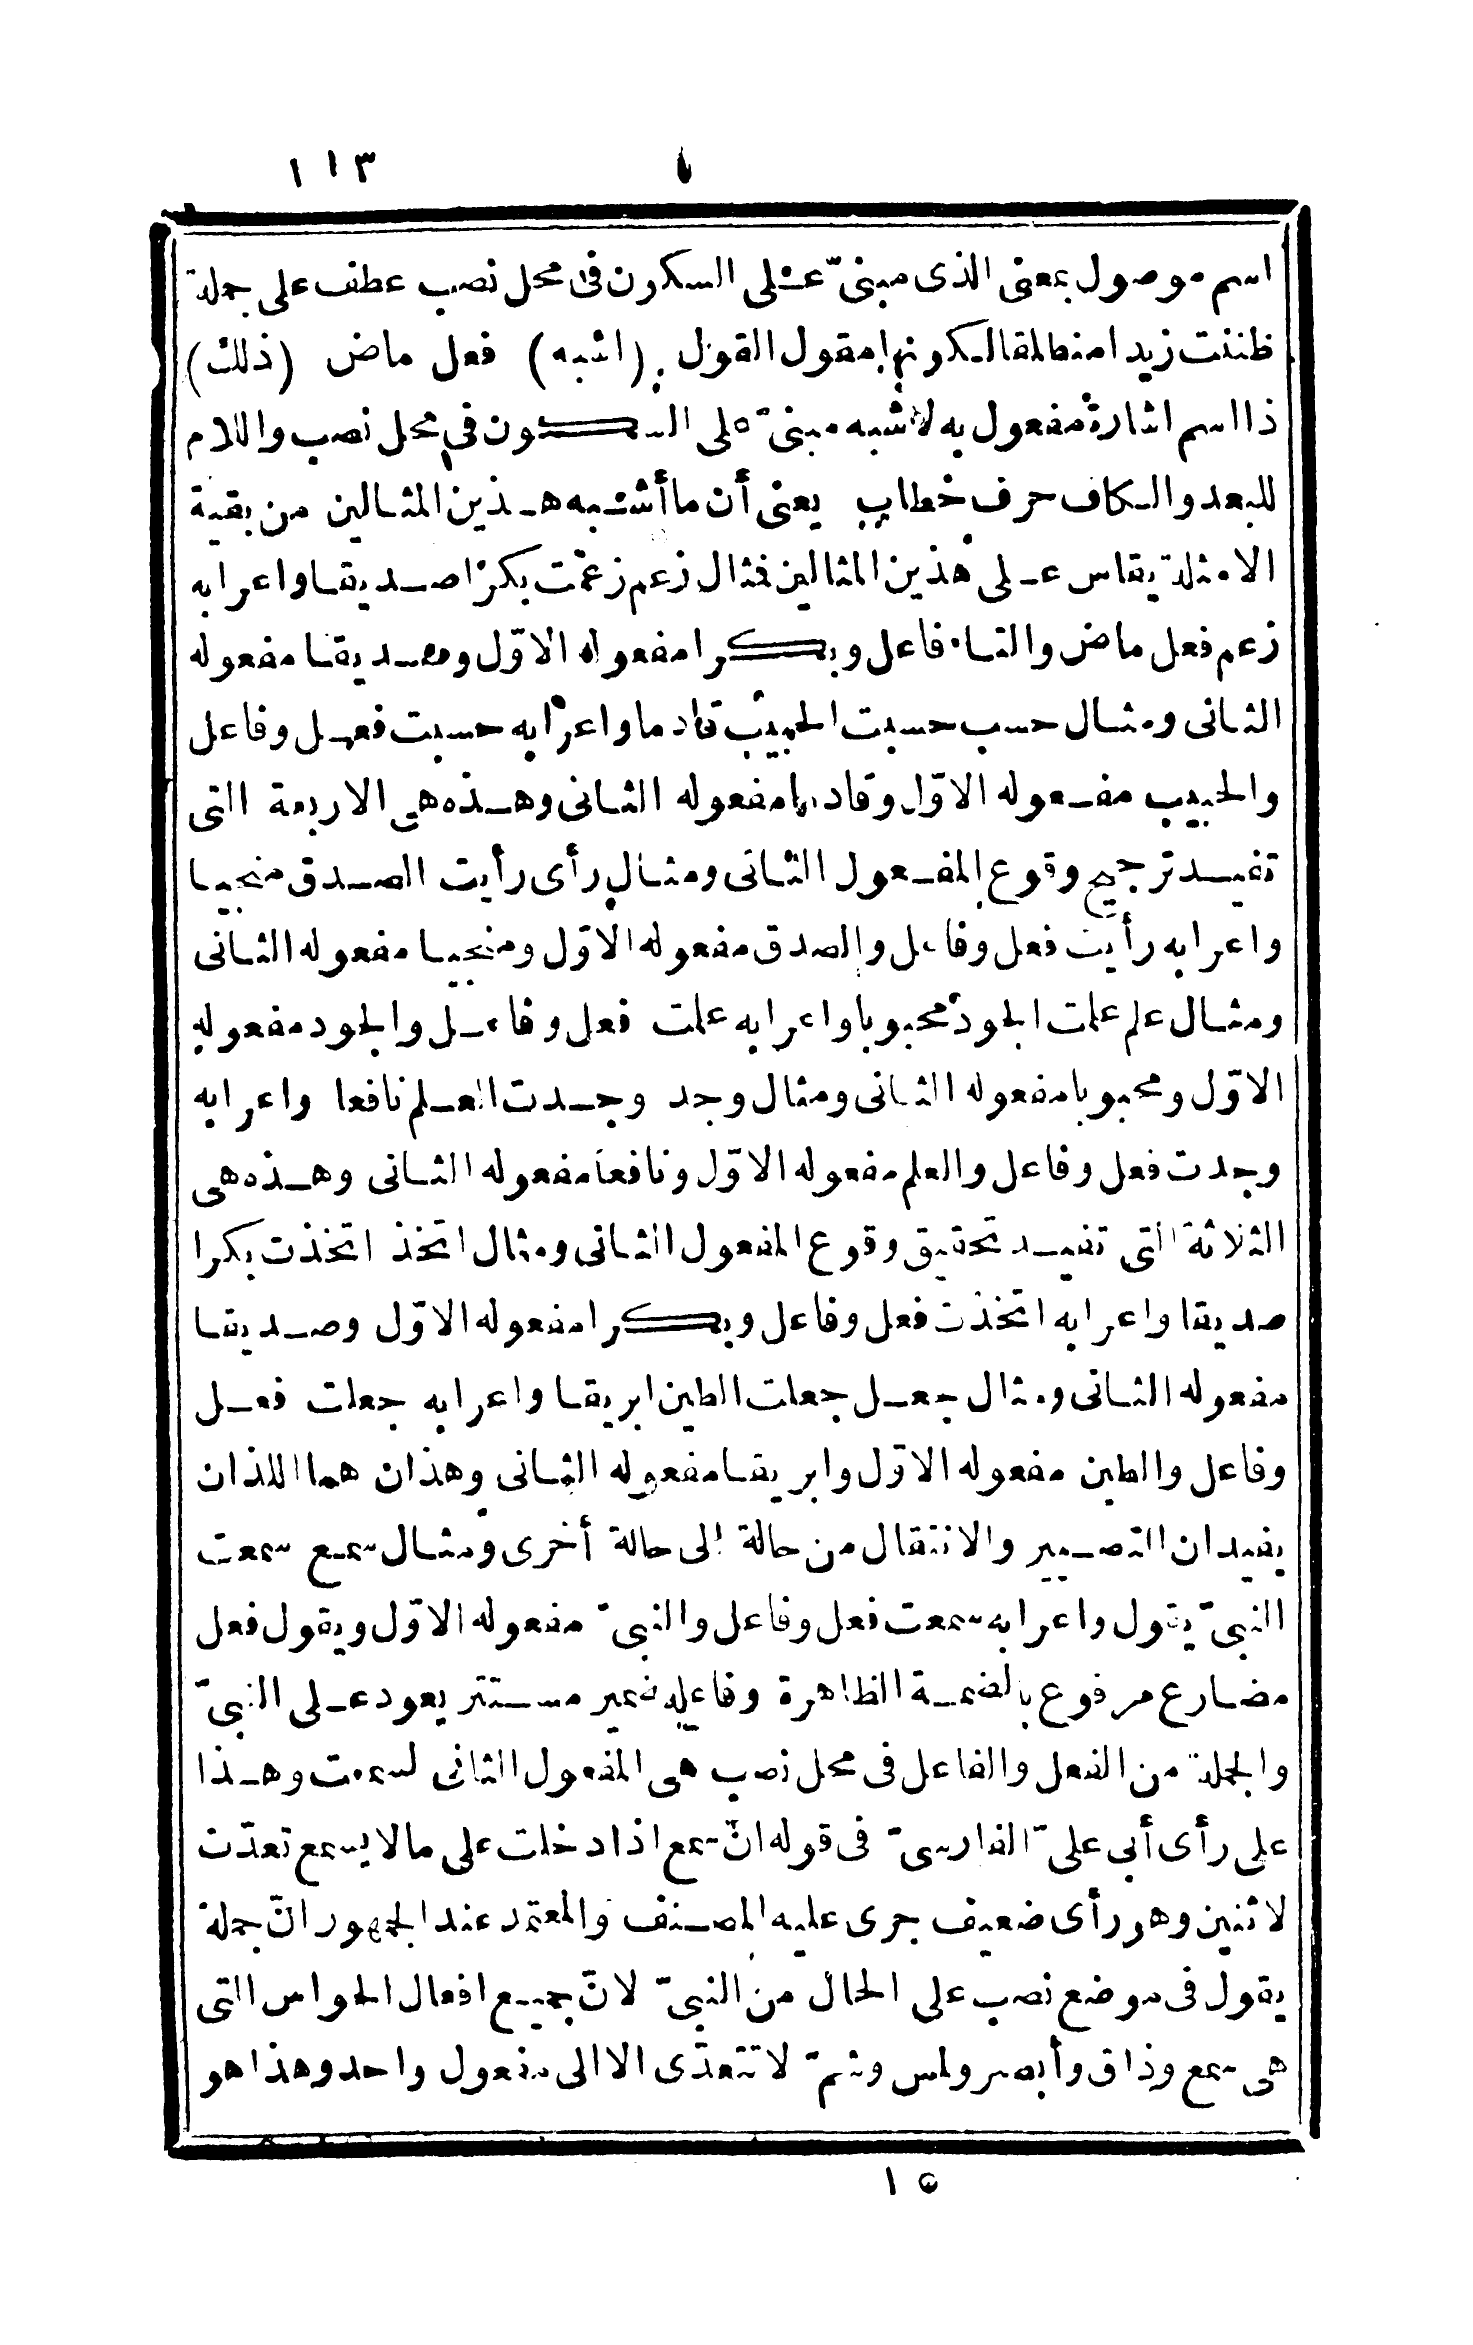 ١١٣
اسم موصول بمعنى الذى مبنىّ على السكون فى محل نصب عطف على جملة
ظننت زيدا منطلقا لكونها مقول القول (اشبه) فعل ماض (ذلك)
ذا اسم اشارة مفعول به لاشبه مبنىّ على السكون فى محل نصب واللام
للبعد والكاف حرف خطاب يعنى أن ما أشبه هذين المثالين من بقية
الامثلة يقاس على هذين المثالين فمثال زعم زعمت بكرا صديقا واعرابه
زعم فعل ماض والتاء فاعل وبكرا مفعوله الاوّل وصديقا مفعوله
الثانى ومثال حسب حسبت الحبيب قادما واعرابه حسبت فعل وفاعل
والحبيب مفعوله الاوّل وقادما مفعوله الثانى وهذه هى الاربعة التى
تفيد ترجيح وقوع المفعول الثانى ومثال رأى رأيت الصدق منجيا
واعرابه رأيت فعل وفاعل والصدق مفعوله الاوّل ومنجيا مفعوله الثانى
ومثال علم علمت الجود محبوبا واعرابه علمت فعل وفاعل والجود مفعوله
الاوّل ومحبوبا مفعوله الثانى ومثال وجد وجدت العلم نافعا واعرابه
وجدت فعل وفاعل والعلم مفعوله الاوّل ونافعا مفعوله الثانى وهذه هى
الثلاثة التى تفيد تحقيق وقوع المفعول الثانى ومثال اتخذ اتخذت بكرا
صديقا واعرابه اتخذت فعل وفاعل وبكرا مفعوله الاوّل وصديقا
مفعوله الثانى ومثال جعل جعلت الطين ابريقا واعرابه جعلت فعل
وفاعل والطين مفعوله الاوّل وابريقا مفعوله الثانى وهذان هما اللذان
يفيدان التصيير والانتقال من حالة الى حالة أخرى ومثال سمع سمعت
النبىّ يقول واعرابه سمعت فعل وفاعل والنبىّ مفعوله الاوّل ويقول فعل
مضارع مرفوع بالضمة الظاهرة وفاعله ضمير مستتر يعود على النبىّ
والجملة من الفعل والفاعل فى محل نصب هى المفعول الثانى لسمعت وهذا
على رأى أبى علىّ الفارسىّ فى قوله انّ سمع اذا دخلت على مالا يسمع تعدّت
لاثنين وهو رأى ضعيف جرى عليه المصنف والمعتمد عند الجمهور انّ جملة
يقول فى موضع نصب على الحال من النبىّ لانّ جميع افعال الحواس التى
هى سمع وذاق وأبصر ولمس وشمّ لا تتعدّى الا الى مفعول واحد وهذا هو
١٥